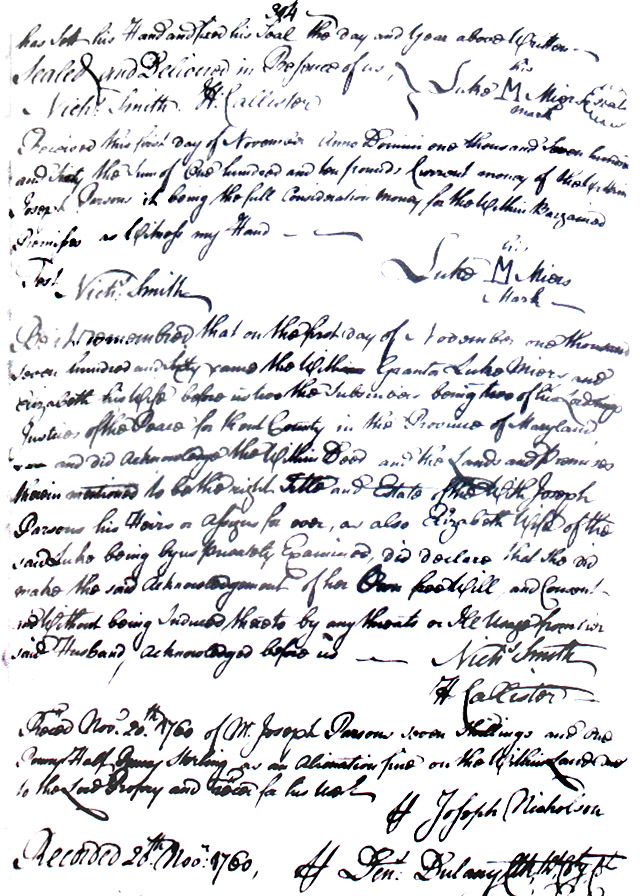 394
has Sett his Hand and fixed his Seal the day and Year above Written
Sealed and Delivered in Presence of us, his
Nichs. Smith H Callister Luke M Miers Seal
mark
Received this first day of November Anno Domini one thousand Seven hundred
and Sixty the Sum of One hundred and ten pounds Current money of the within
Joseph Parsons it being the full Consideration money for the Within Bargained
Premises as Witness my Hand
his
Test. Luke M Miers
Nichs. Smith Mark
Be it remembered that on the first day of November one thousand
seven hundred and Sixty came the Within Grantor Luke Miers and
Elizabeth his Wife before us two the Subscribers being two of his Lordships
Justices of the Peace for Kent County in the Province of Maryland
and did Acknowledge the Within Deed and the Lands and Premises
therein mentioned to be the right Title and Estate of the With. Joseph
Parsons his Heirs or Assigns for ever, as also Elizabeth Wife of the
said Luke being by us Privately Examined, did declare that she did
make the said Acknowledgement of her Own free Will and Consent
and Without being Induced thereto by any threats or Ill Usage from her
said Husband, Acknowledged before us Nichs. Smith
H Callister
Reced Novr. 20.th 1760 of Mr. Joseph Parsons seven Shillings and one
Penny Half Penny Sterling as an Alienation fine on the Within Land due
to the Lord Propry and reced for his use
Joseph Nicholson
Recorded 20th Novr. 1760, Dens. Dulany Clk